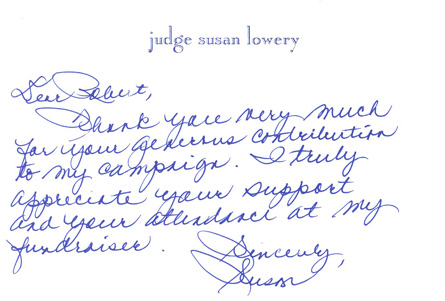 judge susan lowery
Dear Robert,
Thank you very much
for your generous contribution
to my campaign. I truly
appreciate your support
and your attendance at my
fundraiser.
Sincerely,
Susan